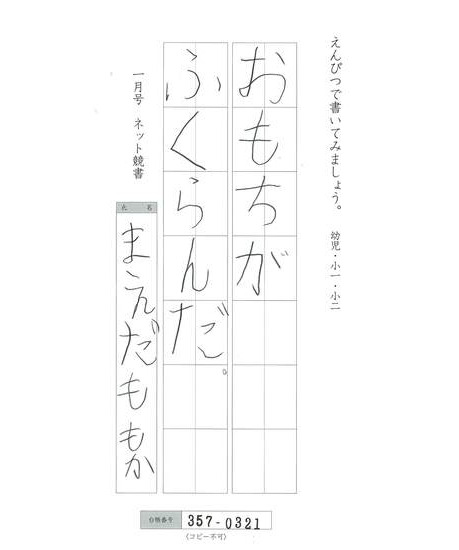 えんぴつで書いてみましょう。 幼児・小一・小二
おもちが
ふくらんだ。
一月号 ネット競書
氏名
まえだももか
台帳番号 357-0321
〈コピー不可〉